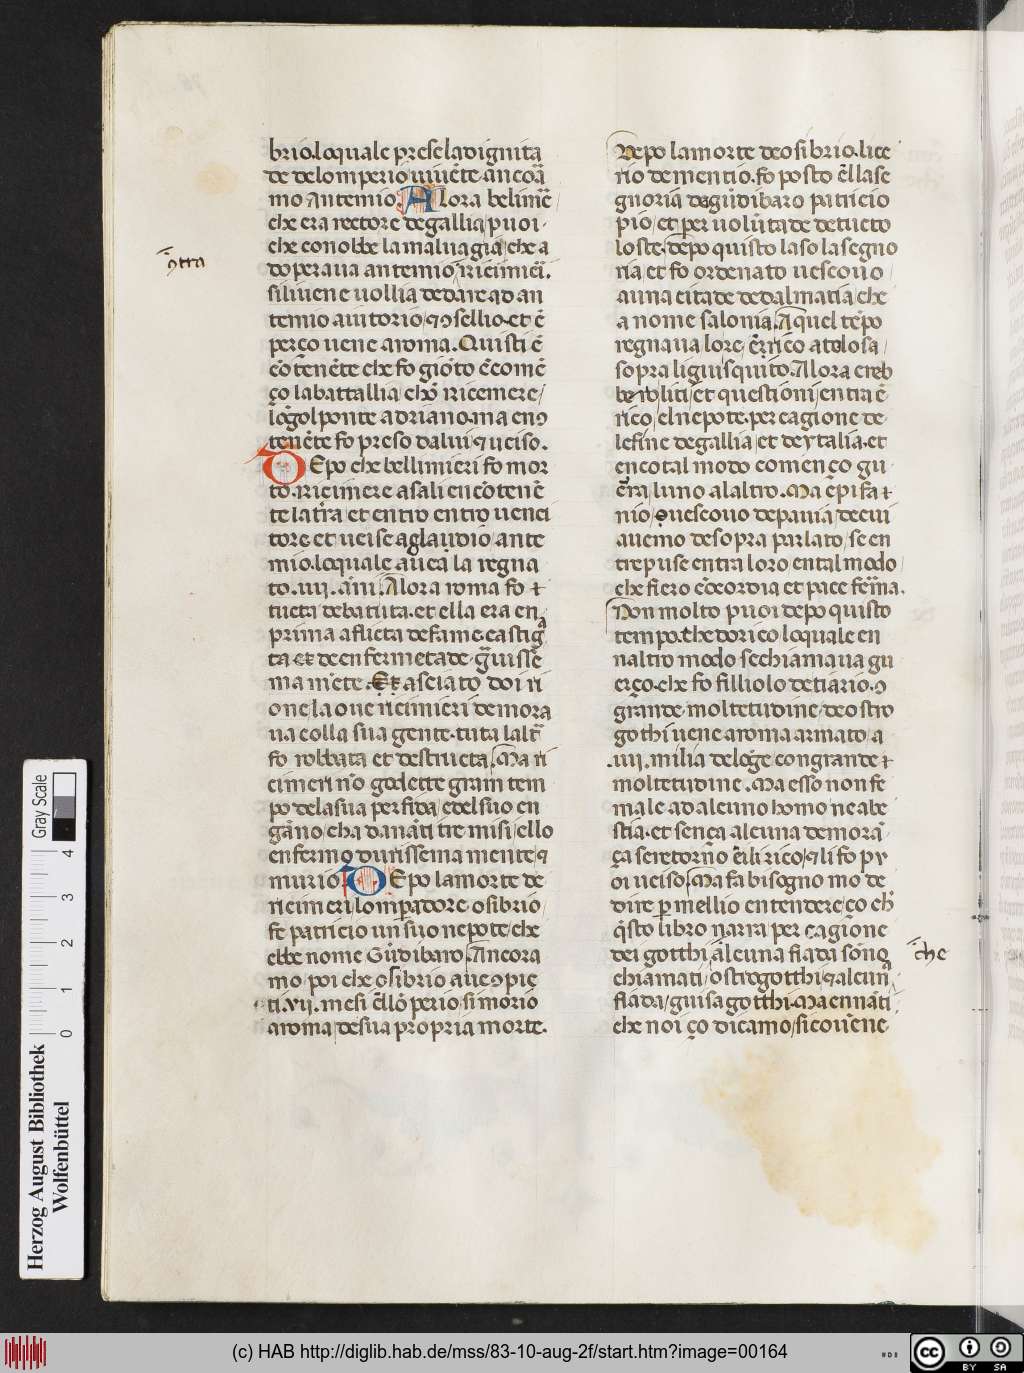 brio.loquale prese la dignita
de delomperio uiuēte ancoā
mo Antemio. Alora belimē
che era rectore de gallia puoi
che conobbe la maluagia che a
doperaua antemio ricimeī.
siliuene uollia de dare ad an
temio aiutorio ⁊ ꝯsellio. et ē
perço uene aroma. Quisti ē
cōtenēte che fo giōto ēcomē
ço la battallia chō ricimere
lōgol ponte adriano. ma enꝯ
tenēte fo preso dalui ⁊ uciso.
DEpo che bellimieri fo mor
to. ricimere asali encōtenē
te la tr̄a et entro entro uenci
tore et ucise aglaudio ante
mio. loquale auea la regna
to .iiii. āni. Alora roma fo t
tucta debatuta. et ella era en
prima aflicta de fame. castig
ta et de enfermetade. gūissē
mamēte. Et asciato doi ri
one la oue ricimieri demora
ua colla sua gente. tuta laltr̄
fo robbata et destructa. Ma ri
cimeri nō godette gram tem
po dela sua perfida e del suo en
gāno cha danāti tre misi ello
enfermo durissema mente ⁊
murio. DEpo la morte de
ricimeri lomꝑadore osibrio
fe patricio un suo nepote che
ebbe nome Gūdibaro. Ancora
mo poi che osibrio aueꝯpie
ti .vii. mesi ēllo perio si morio
aroma de sua propria morte.
Depo la morte de osibrio. lice
rio dementio. fo posto ēlla se
gnoria da gūdibaro patricio
pio et per uolūtade de tucto
loste. Depo quisto laso la segno
ria et fo ordenato uescouo
auna citade de dalmatia che
a nome salonia. A quel tēpo
regnaua lore ērrico atolosa
sopra li guisquito. Alora creb
be molti et questioni entra ē
rico el nepote. per cagione de
le fine de gallia et de ytalia. et
en cotal modo començo gu
ērra luno alaltro. Ma epifa t
nio uescouo de pauia de cui
auemo de sopra parlato se en
trepuse entra loro ental modo
che fiero cōcordia et pace ferma.
Non molto puoi depo quisto
tempo. the dorico loquale en
naltro modo se chiamaua gu
erço. che fo filliolo de tiario. ꝯ
grande moltetudine de ostro
gothi uene aroma armato a
.iiii. milia de loge con grande t
moltetudine. Ma esso non fe
male ad alcuno homo ne a be
stia. et sença alcuna demorā
ça se retorno ēilirico ⁊ li fo pv
oi uciso. Ma fa bisogno mo de
dire ꝑ mellio entendere ço ch̄
q̄sto libro narra per cagione
dei gotthi. Alcuna fiada sōno
chiamati ostrogotthi ⁊ alcun
fiada guisagotthi. Ma ennāti
che noi ço dicamo si couēne
ꝯtra
che
Herzog August Bibliothek
Wolfenbüttel
Gray Scale
0 1 2 3 4
(c) HAB http://diglib.hab.de/mss/83-10-aug-2f/start.htm?image=00164
cc BY SA